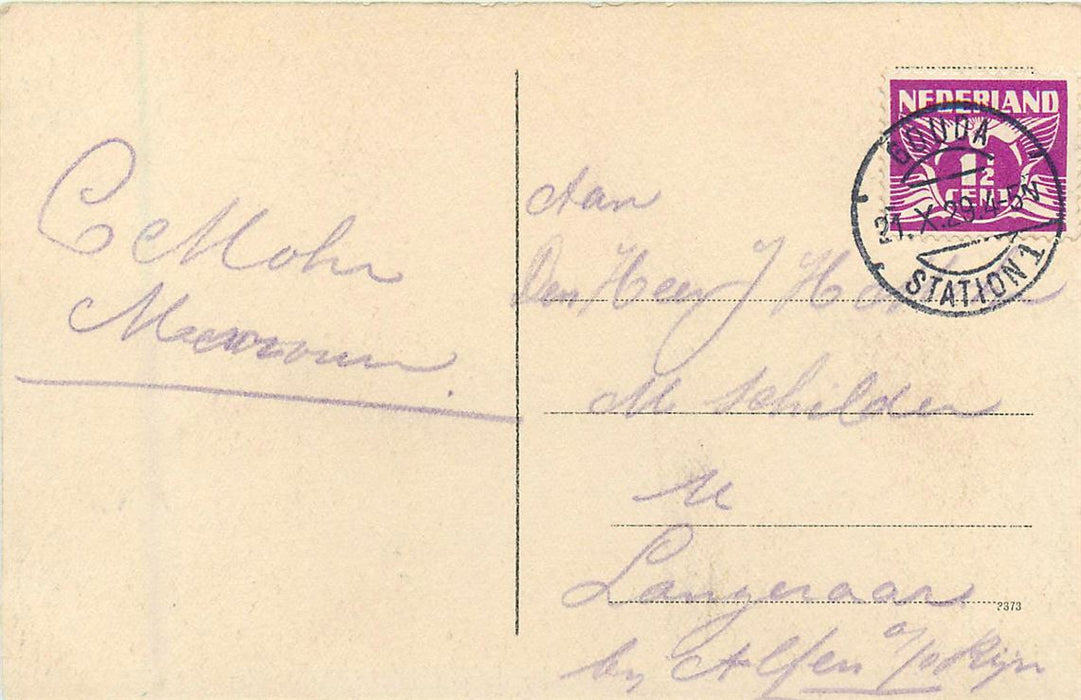 C Mohr
Aan
Den Heer J
M Schilder
te
Langeraar
by Alfen o/d Rijn
NEDERLAND
1½
CENT
GOUDA
21.X.29.4-5N
STATION 1
2373